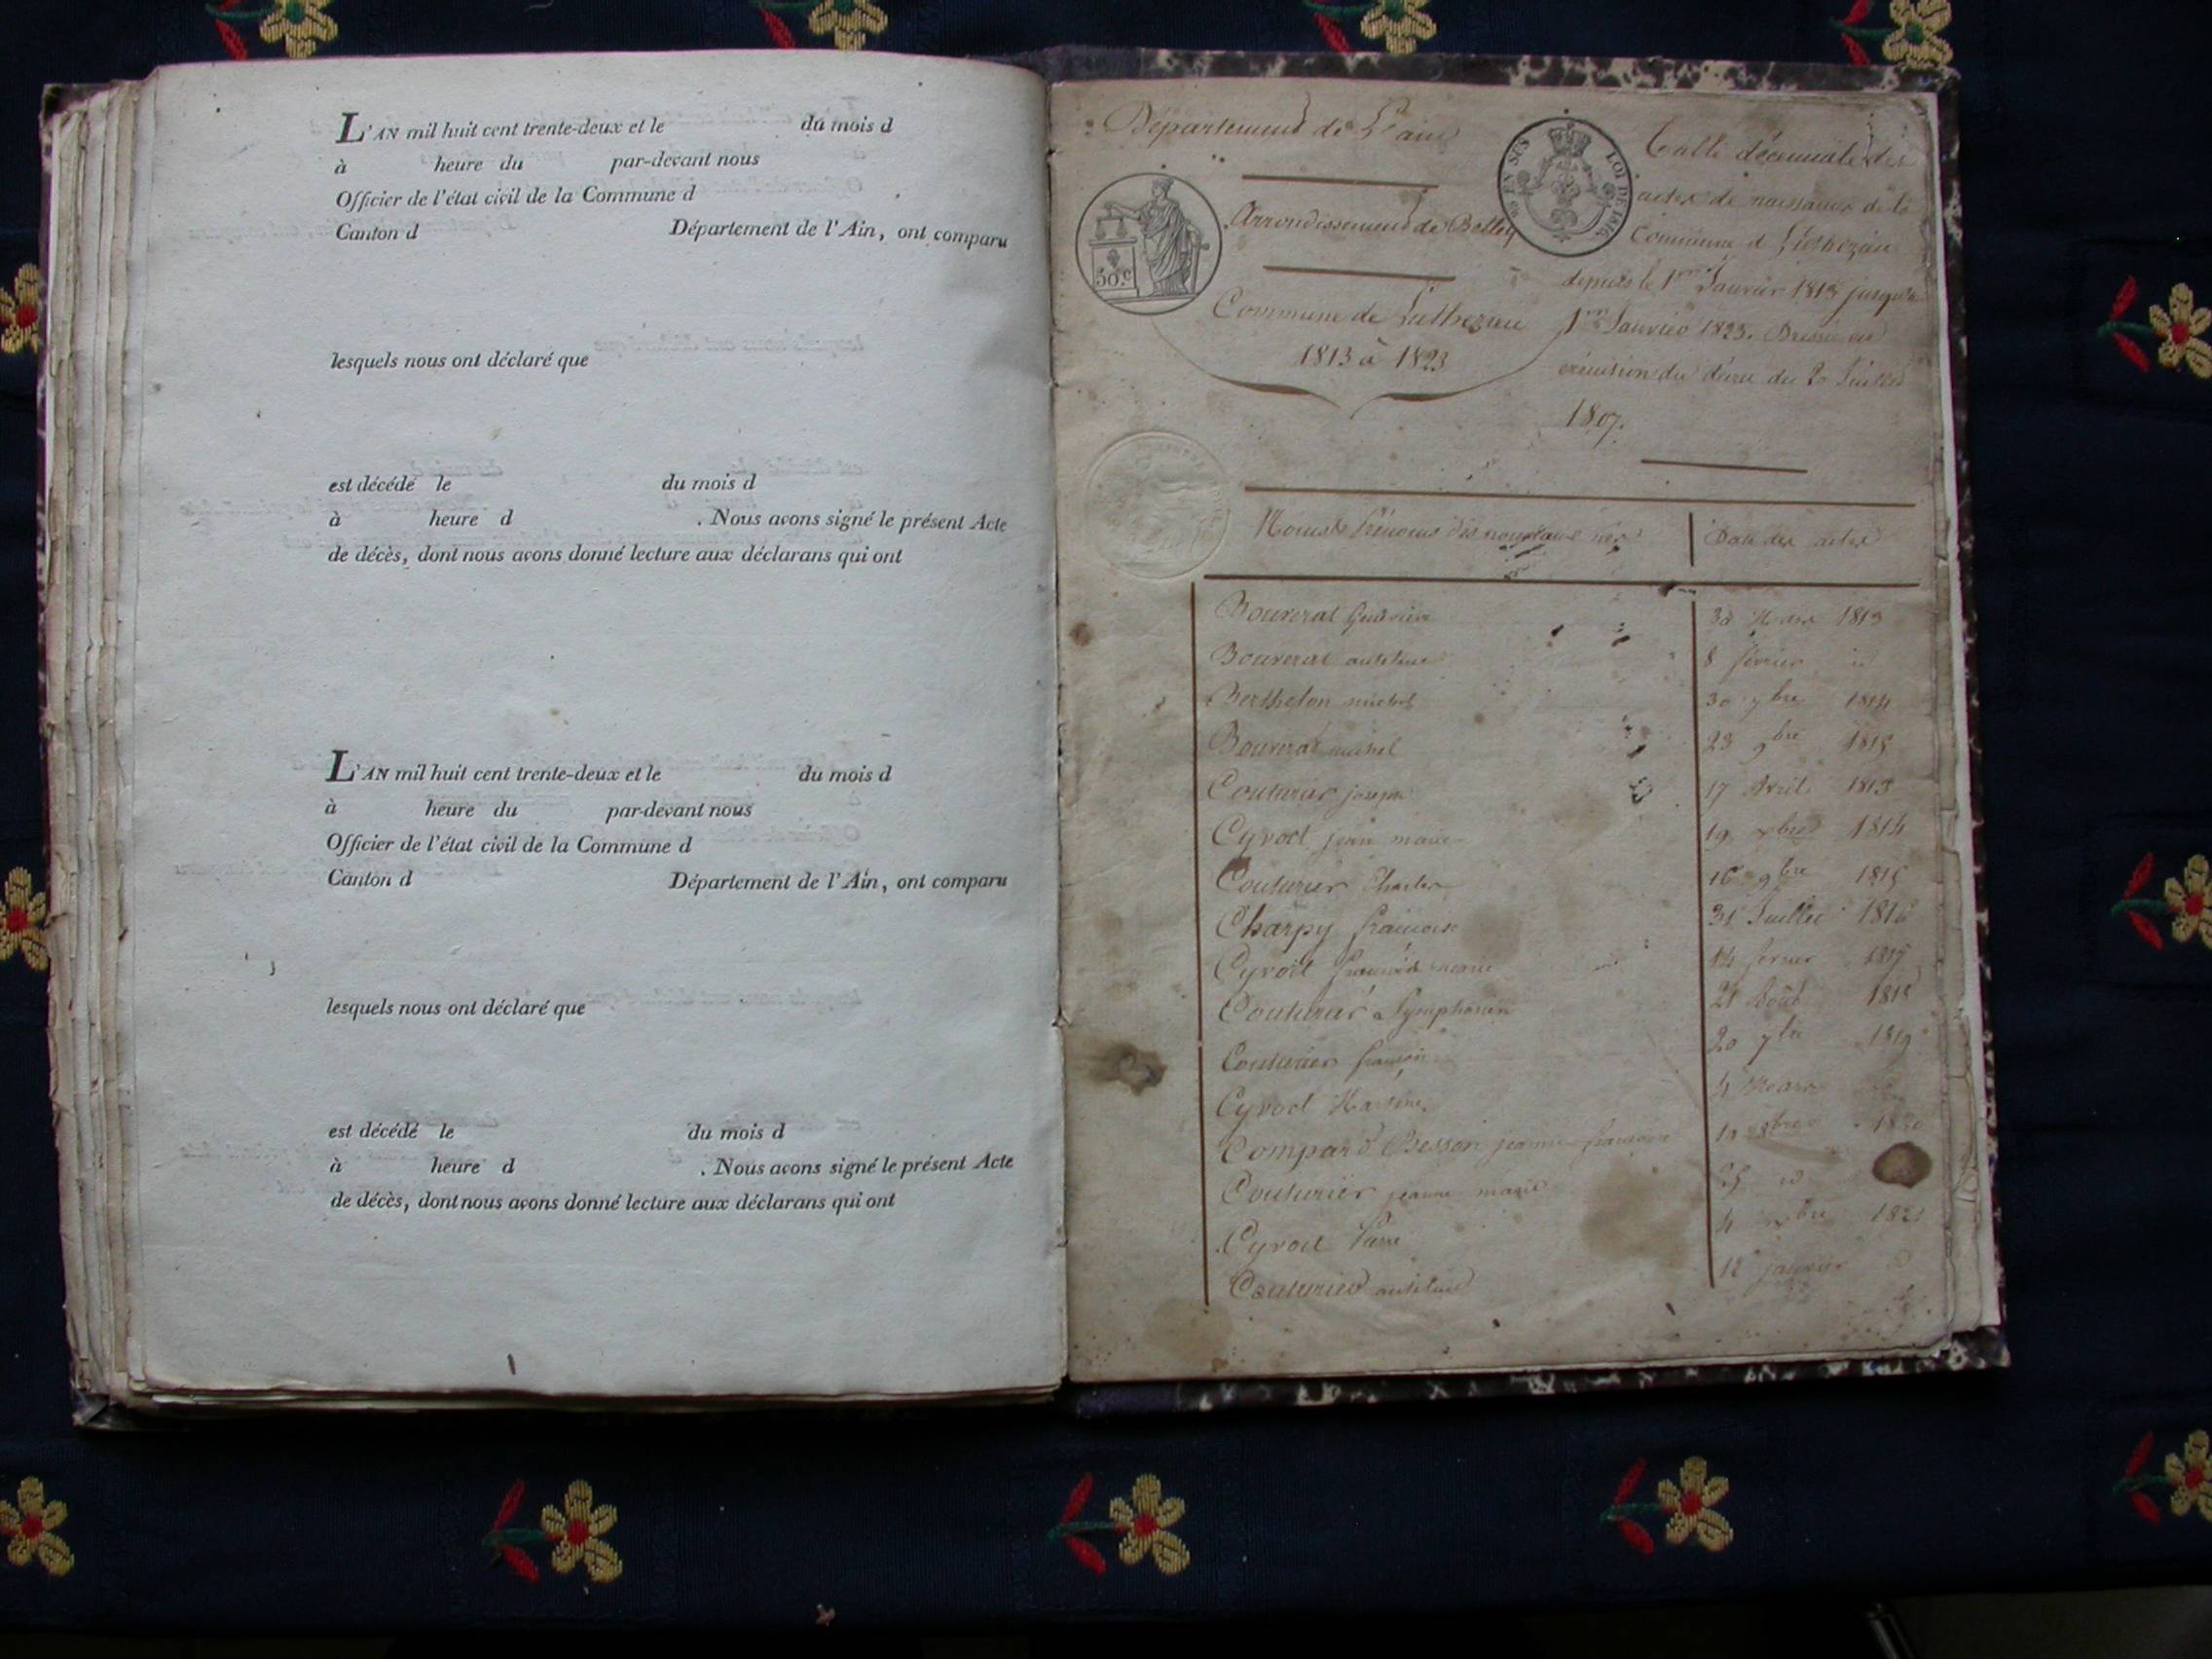 L'AN mil huit cent trente-deux et le du mois d
à heure du par-devant nous
Officier de l'état civil de la Commune d
Canton d Département de l'Ain, ont comparu
lesquels nous ont déclaré que
est décédé le du mois d
à heure d . Nous avons signé le présent Acte
de décès, dont nous avons donné lecture aux déclarans qui ont
L'AN mil huit cent trente-deux et le du mois d
à heure du par-devant nous
Officier de l'état civil de la Commune d
Canton d Département de l'Ain, ont comparu
lesquels nous ont déclaré que
est décédé le du mois d
à heure d . Nous avons signé le présent Acte
de décès, dont nous avons donné lecture aux déclarans qui ont
Département de L'ain
50.c
Arrondissement de Belley
Commune de Luthezieu
1813 à 1823
EN SUS LOI DE 1816
Table décennale des
actes de naissance de la
Commune d Luthezieu
depuis le 1er Janvier 1813 jusqu'a
1er Janvier 1823. Dressée en
exécution du décret du 20 Juillet
1807.
Noms & Prénoms des nouveaux nés Date des actes
Bouverat 30 Mars 1813
Bouverat antelme 8 février id
Berthelon michel 30 7bre 1814
Bouverat michel 23 9bre 1815
Couturier joseph 17 Avril 1813
Cyvoct jean marie 19 xbre 1814
Couturier Charles 16 9bre 1815
Charpy francoise 31 Juillet 1816
Cyvoct marie 14 fevrier 1817
Couturier Symphorien 21 Août 1818
Couturier françois 20 7bre 1819
Cyvoct 4 Mars
Compard Besson jeanne francoise 19 1820
Couturier jeanne marie 25 id
Cyvoct Pierre 4 xbre
Couturier antelme 12 janvier